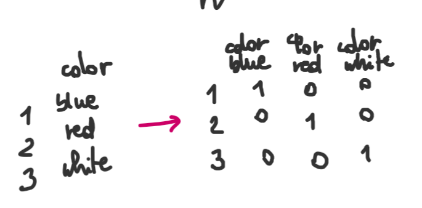 color
1 blue
2 red
3 white
color blue color red color white
1 1 0 0
2 0 1 0
3 0 0 1